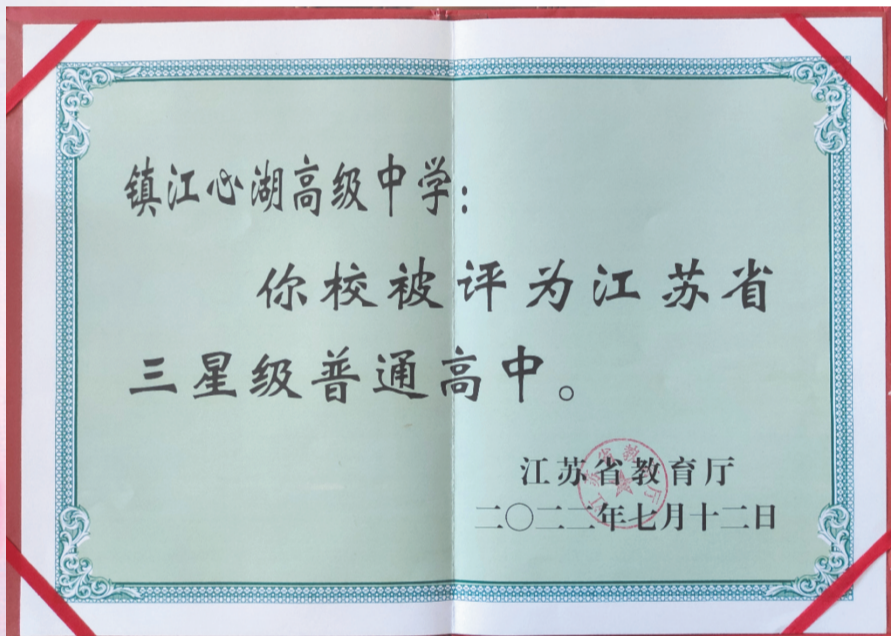 镇江心湖高级中学:
你校被评为江苏省
三星级普通高中。
江苏省教育厅
二〇二二年七月十二日
江苏省教育厅